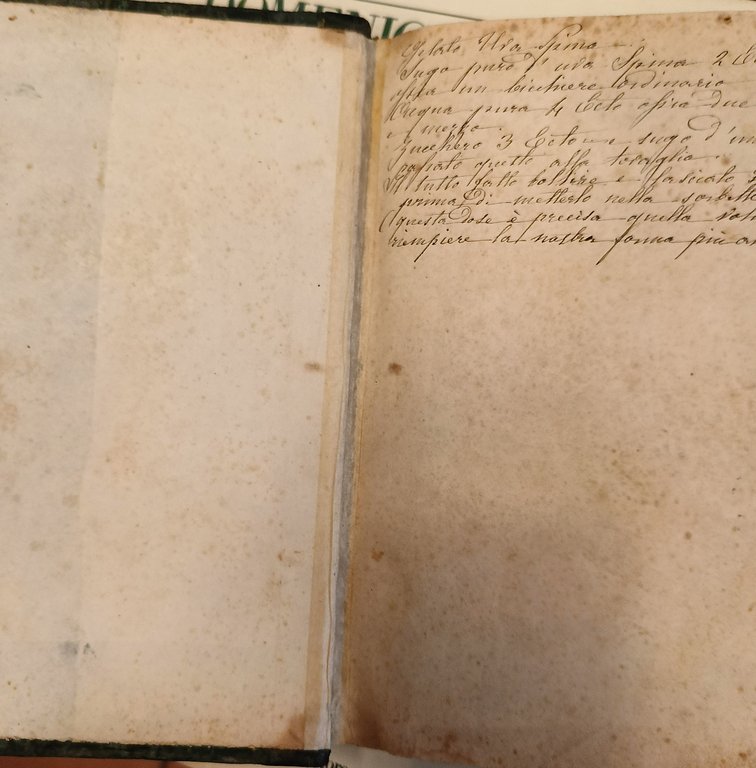 DOMENIC
Gelato Uva Spina
Sugo puro d'uva Spina 2 E
ossia un bicchiere ordinario
Acqua pura 4 Ecto ossia due
e mezzo.
Zucchero 3 Ecto e sugo d'un
passato questo alla tovaglia.
Il tutto fatto bollire e lasciato
prima di metterlo nella sorbett
questa dose è precisa quella
riempiere la nostra forma più